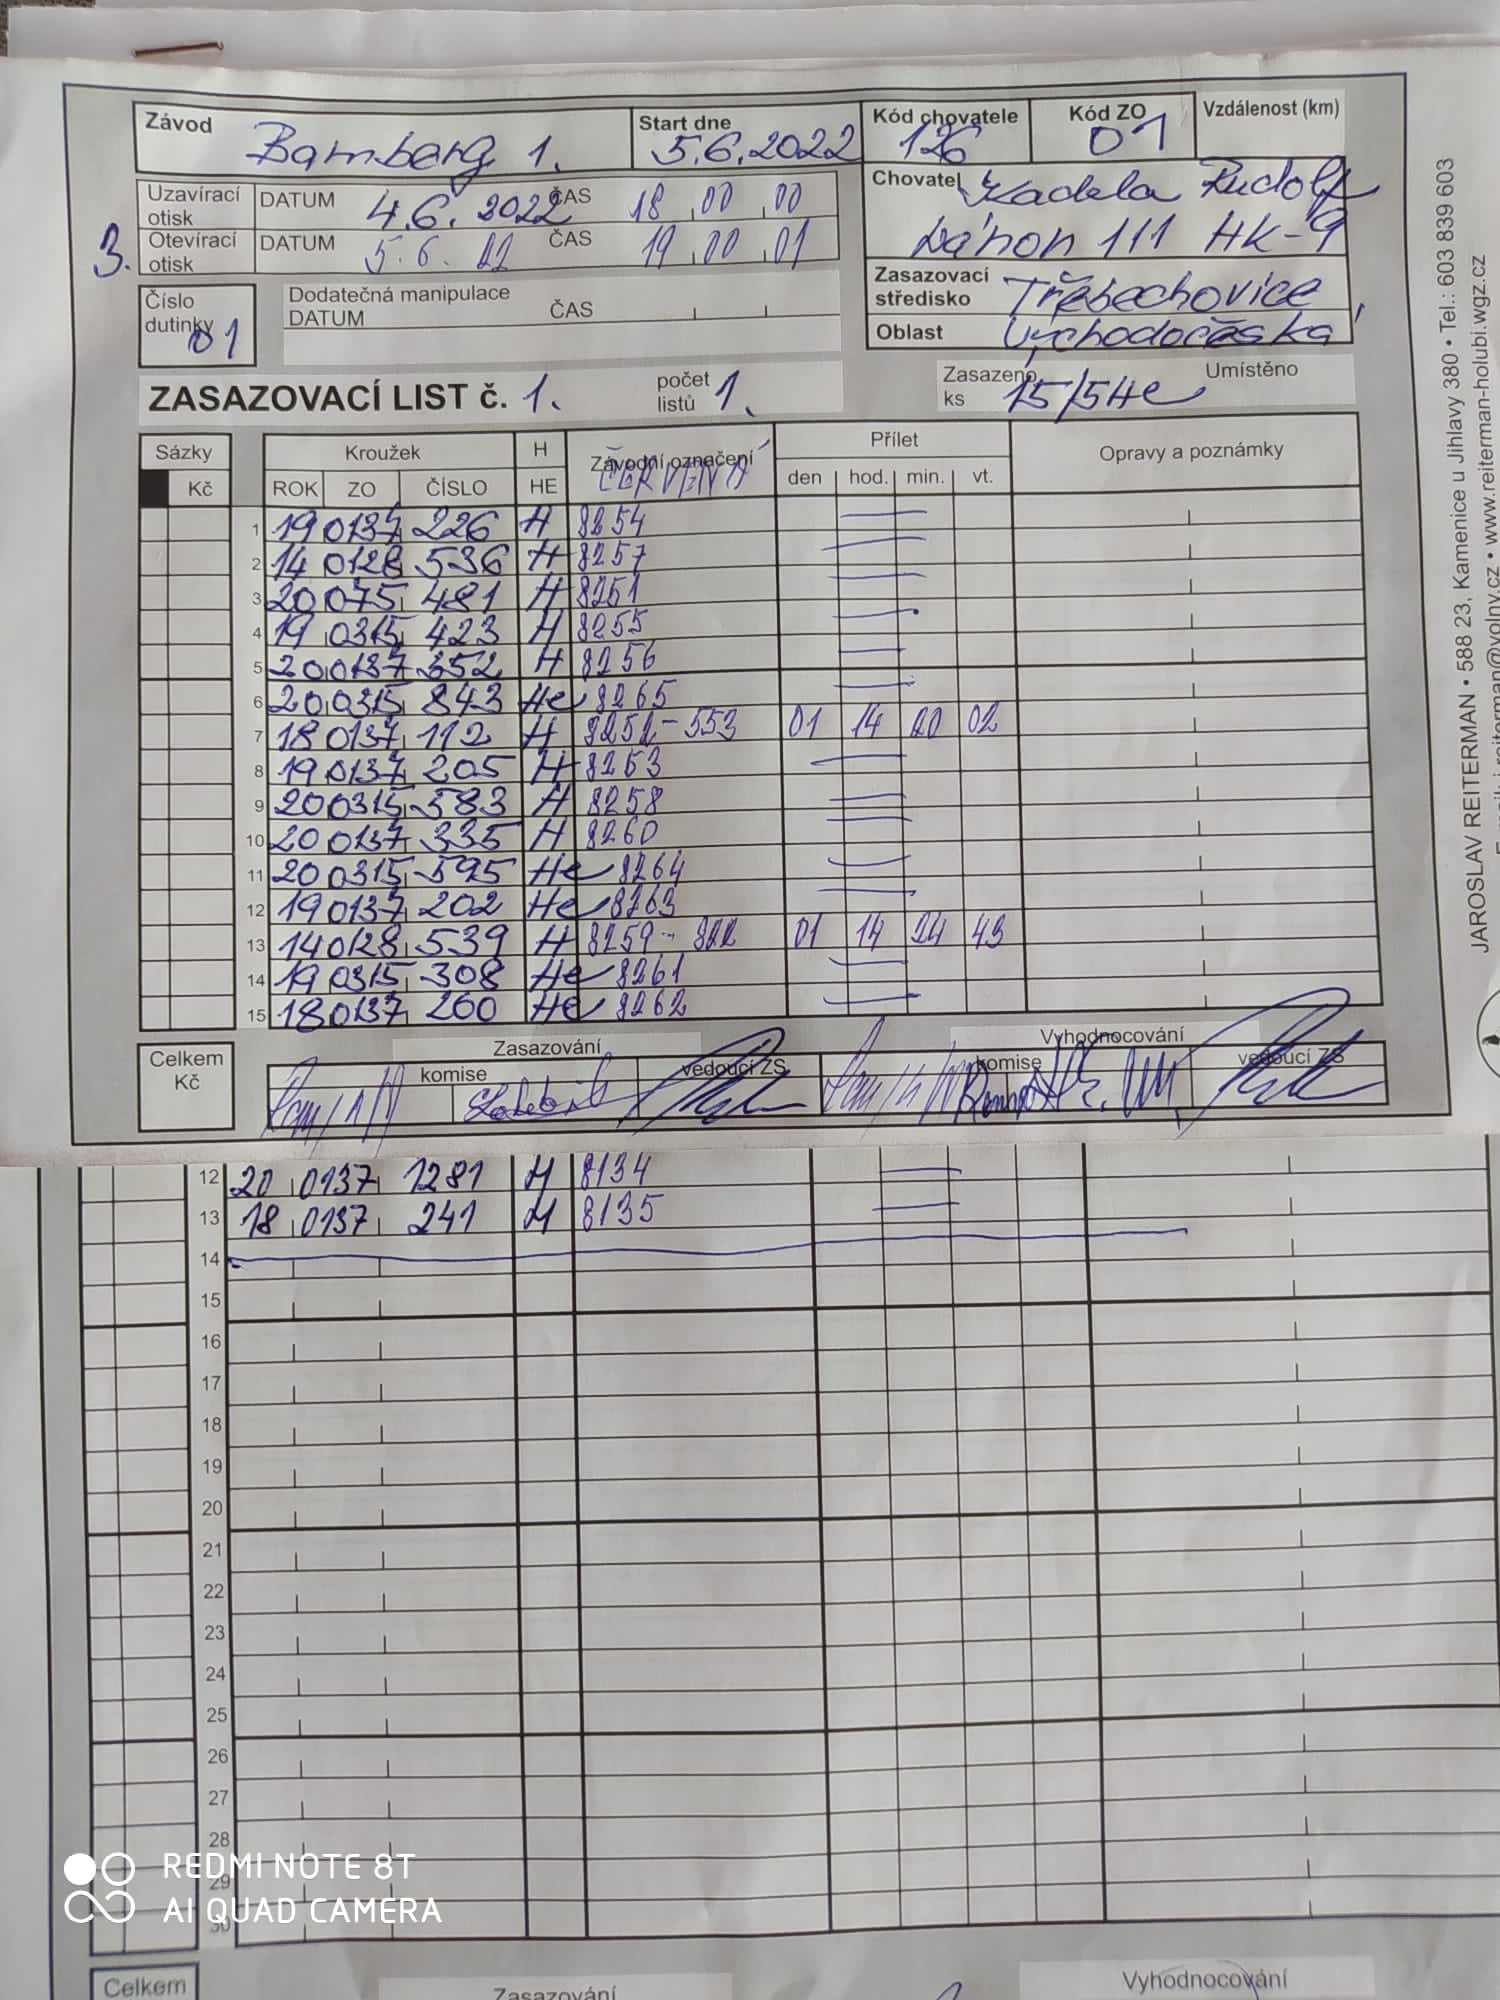 Závod Bamberg 1. Start dne 5.6.2022 Kód chovatele 126 Kód ZO 01 Vzdálenost (km)
Uzavírací otisk DATUM 4.6.2022 ČAS 18 00 00
3. Otevírací otisk DATUM 5.6.22 ČAS 19 00 01
Chovatel Rudolf
111 HK-9
Zasazovací středisko Třebechovice
Oblast Východočeská
Číslo dutinky 01
Dodatečná manipulace
DATUM ČAS
ZASAZOVACÍ LIST č. 1. počet listů 1. Zasazeno ks 15/5He Umístěno
Sázky Kroužek H Závodní označení Přílet Opravy a poznámky
Kč ROK ZO ČÍSLO HE ČERVENÁ den hod. min. vt.
1 19 0137 226 H 8254
2 14 0128 536 H 8257
3 20 075 481 H 8251
4 19 0315 423 H 8255
5 20 0137 352 H 8256
6 20 0315 843 He 8265
7 18 0137 112 H 8252-553 01 14 20 02
8 19 0137 205 H 8253
9 20 0315 583 H 8258
10 20 0137 335 H 8260
11 20 0315 595 He 8264
12 19 0137 202 He 8263
13 14 0128 539 H 8259- 01 14 24 43
14 19 0315 308 He 8261
15 18 0137 260 He 8262
Celkem Kč
Zasazování Vyhodnocování
komise vedoucí ZS komise vedoucí ZS
JAROSLAV REITERMAN • 588 23, Kamenice u Jihlavy 380 • Tel.: 603 839 603
reiterman@volny.cz • www.reiterman-holubi.wgz.cz
12 20 0137 1281 H 8134
13 18 0137 241 H 8135
14
15
16
17
18
19
20
21
22
23
24
25
26
27
28
29
30
Celkem Zasazování Vyhodnocování
REDMI NOTE 8T
AI QUAD CAMERA